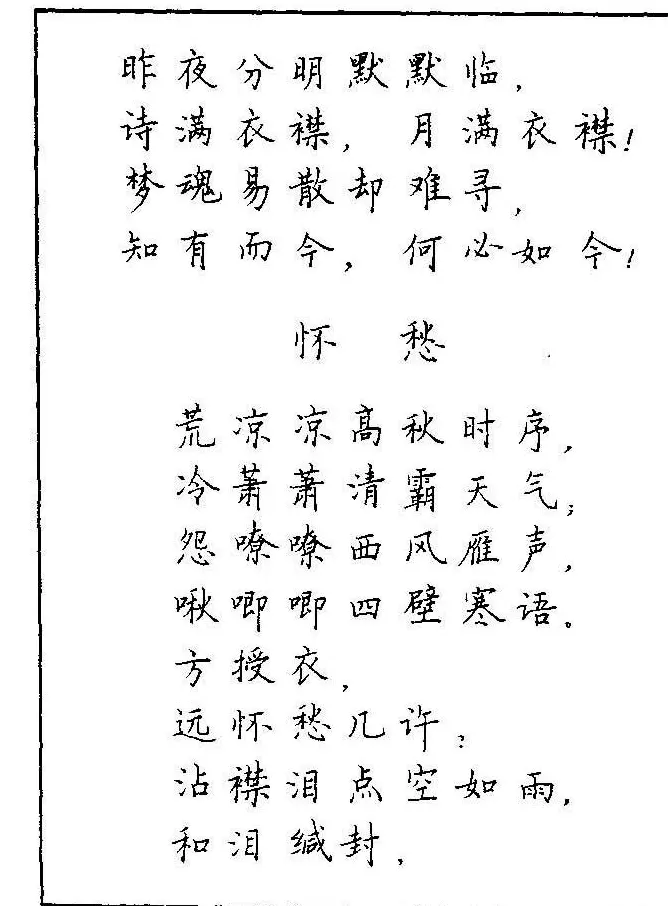 昨夜分明默默临，
诗满衣襟，月满衣襟！
梦魂易散却难寻，
知有而今，何必如今！
怀愁
荒凉凉高秋时序，
冷萧萧清霸天气；
怨嘹嘹西风雁声，
啾唧唧四壁寒语。
方授衣，
远怀愁几许；
沾襟泪点空如雨，
和泪缄封，